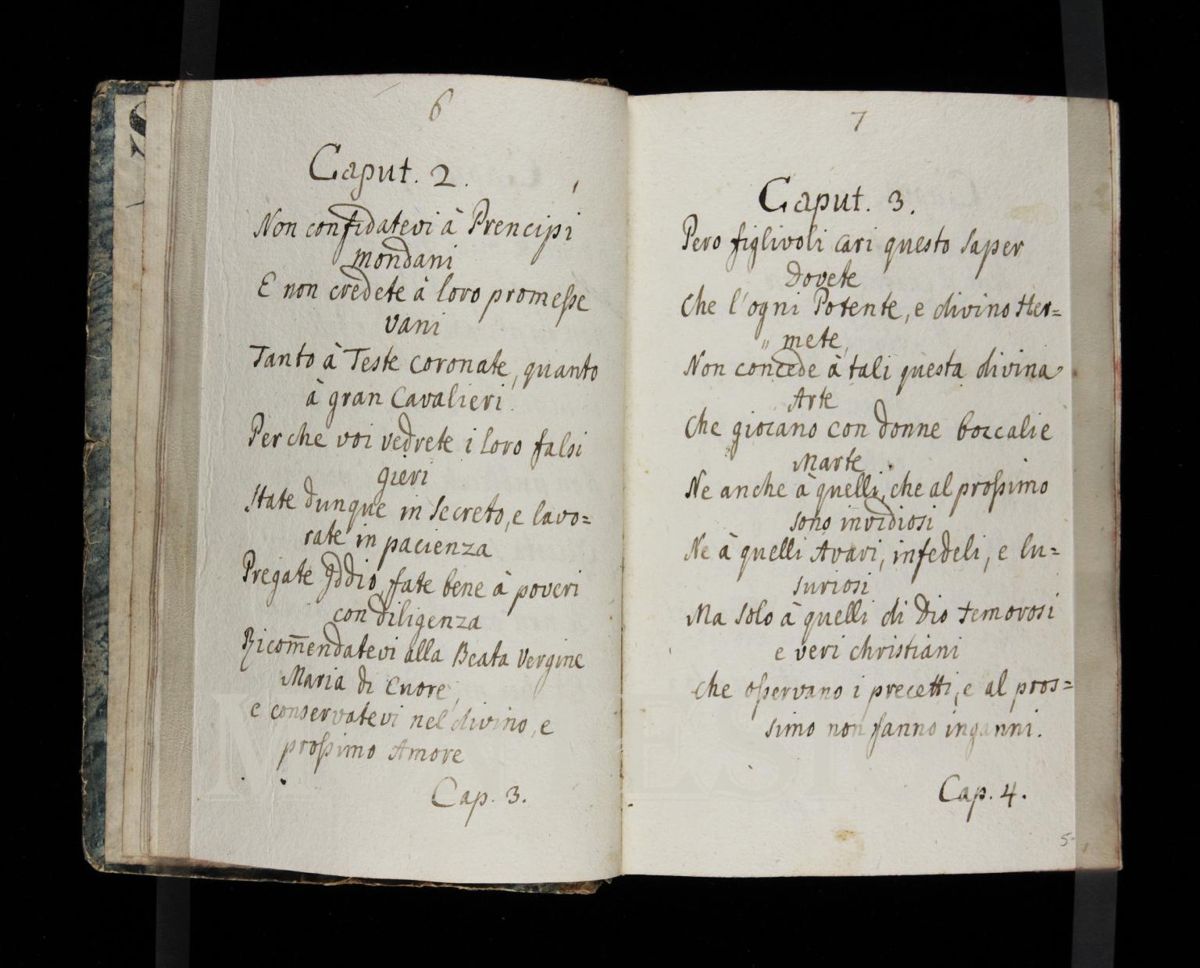 6
Caput. 2.
Non confidatevi à Prencipi
mondani
E non credete à loro promesse
vani
Tanto à Teste coronate, quanto
à gran Cavalieri.
Perche voi vedrete i loro falsi
gieri
State dunque in Secreto, e lavo=
rate in pacienza
Pregate Iddio, fate bene à poveri
con diligenza
Ricom̄endatevi alla Beata Vergine
Maria di Cuore,
e conservatevi nel divino, e
prossimo Amore
Cap. 3.
7
Caput. 3.
Pero figlivoli cari questo saper
Dovete
Che l'ogni Potente, e divino Her=
mete,
Non concede à tali questa divina
Arte
Che giocano con donne boccalie
Marte
Ne anche à quelli, che al prossimo
sono invidiosi
Ne à quelli Avari, infedeli, e lu=
suriosi
Ma solo à quelli di Dio temorosi
e veri christiani
che osservano i precetti, e al pros=
simo non fanno inganni.
Cap. 4.
5